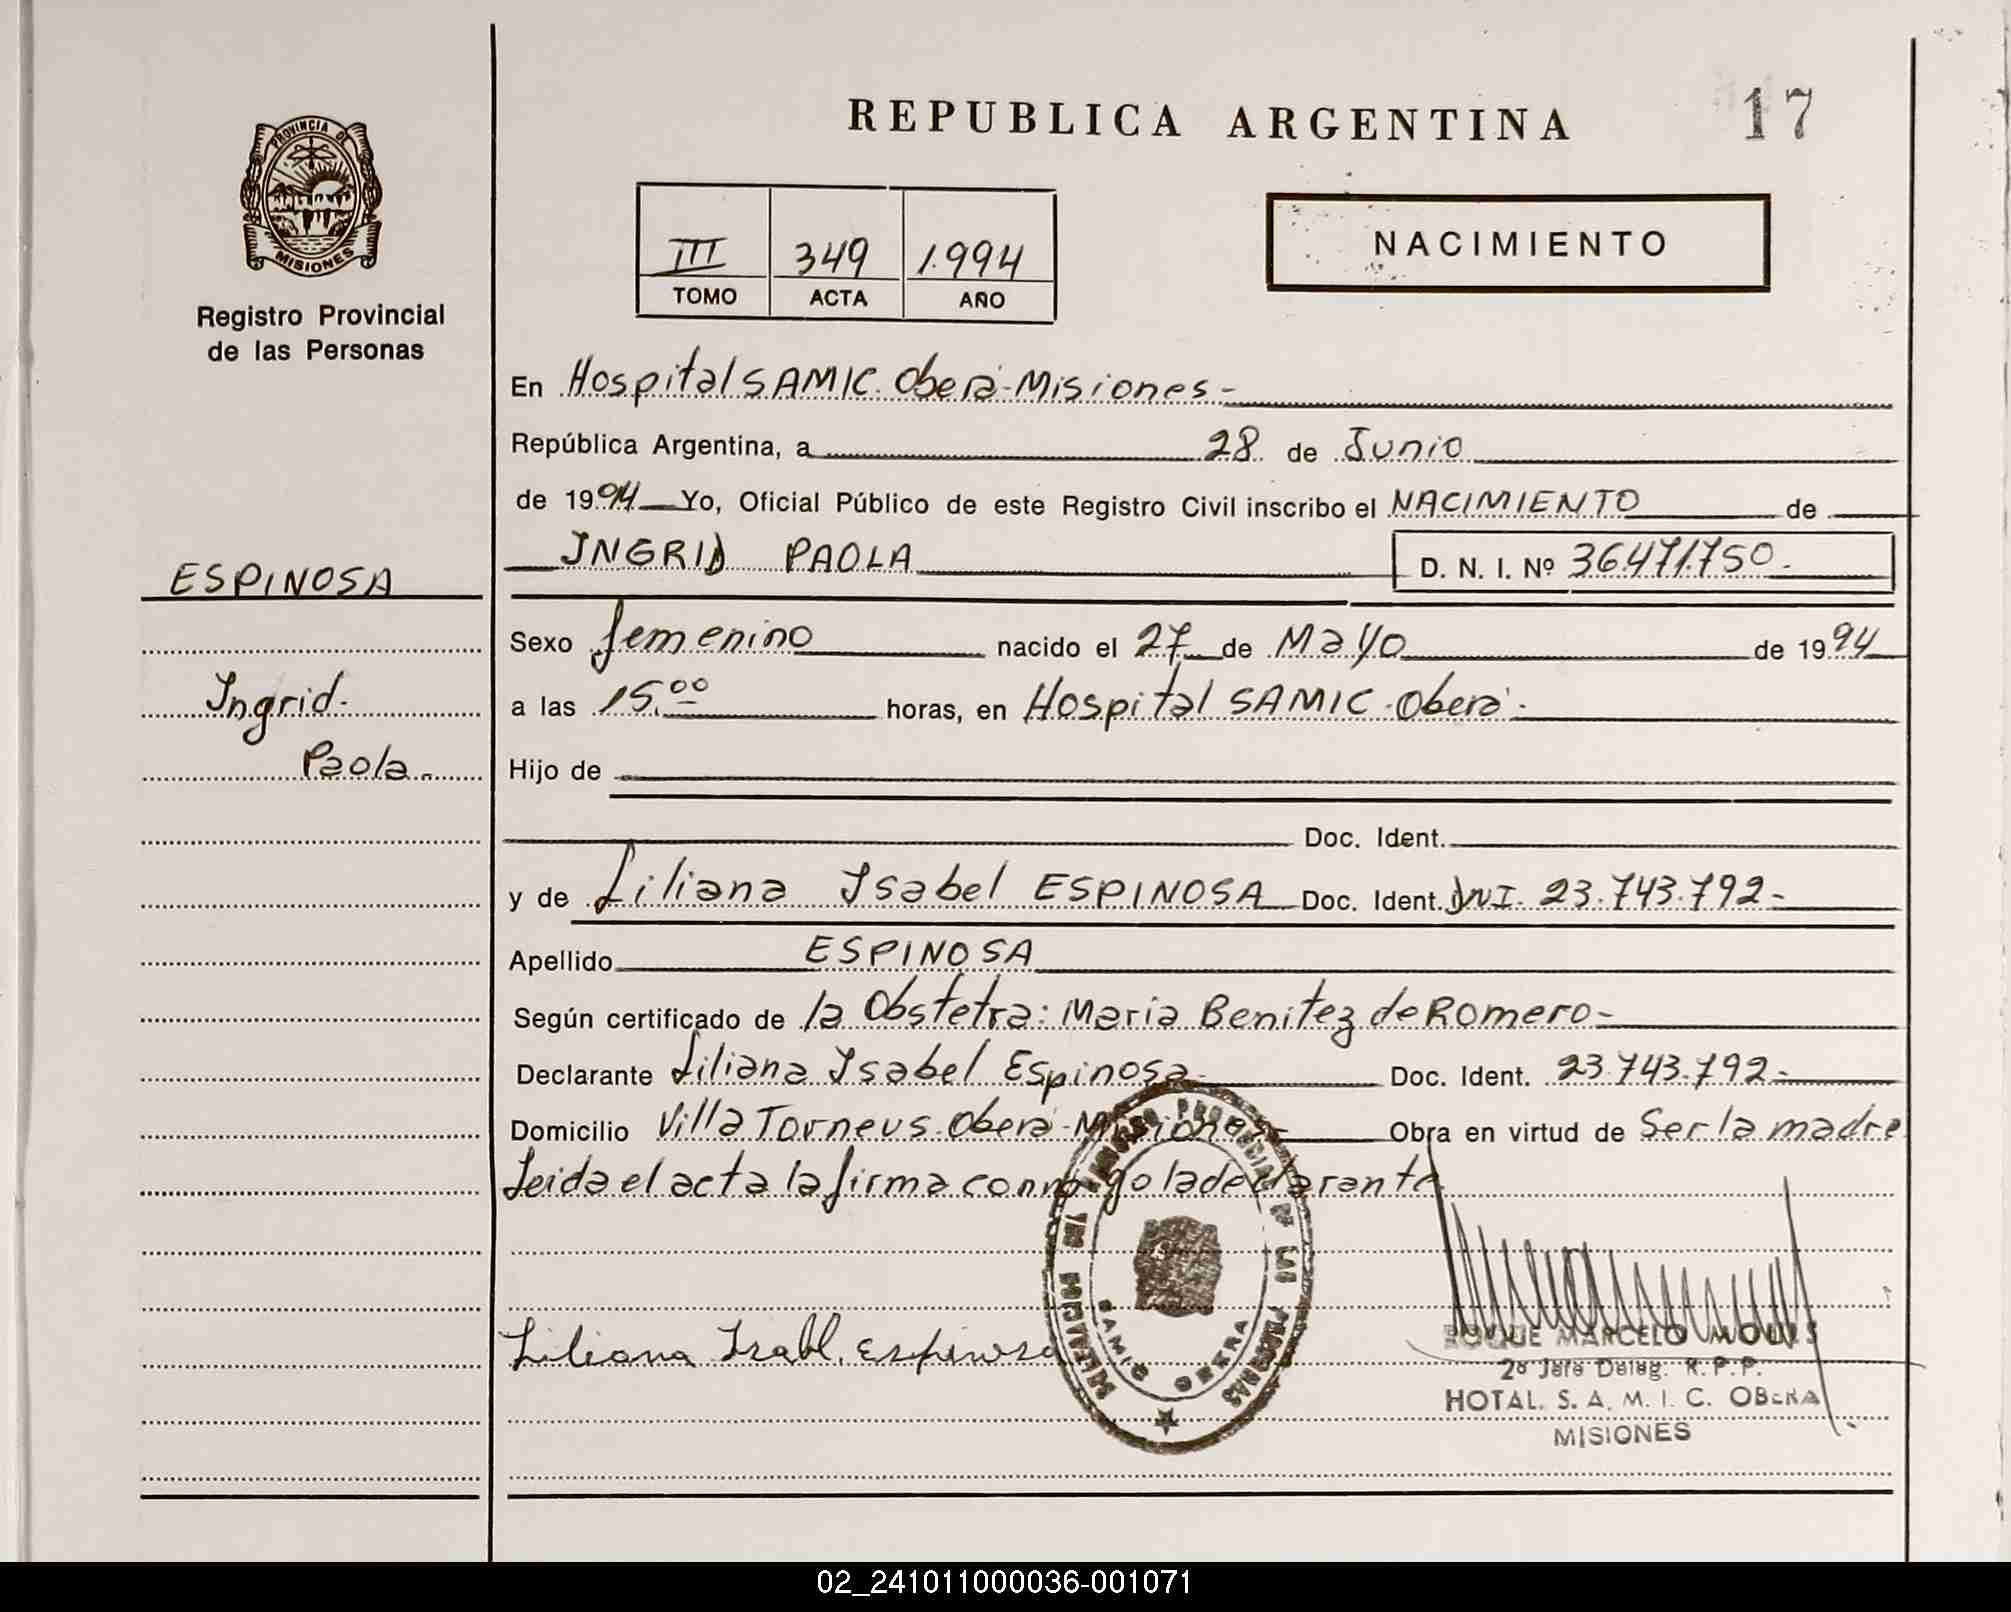 REPUBLICA ARGENTINA
17
PROVINCIA DE
MISIONES
Registro Provincial
de las Personas
III 349 1.994
TOMO ACTA AÑO
NACIMIENTO
En Hospital SAMIC. Oberá-Misiones-
República Argentina, a 28 de Junio
de 1994 Yo, Oficial Público de este Registro Civil inscribo el NACIMIENTO de
INGRID PAOLA D. N. I. Nº 36.471.750.-
ESPINOSA
Ingrid.
Paola.
Sexo femenino nacido el 27 de Mayo de 1994
a las 15,00 horas, en Hospital SAMIC-Oberá-
Hijo de
Doc. Ident.
y de Liliana Isabel ESPINOSA Doc. Ident. DNI. 23.743.792-
Apellido ESPINOSA
Según certificado de la Obstetra: Maria Benitez de Romero-
Declarante Liliana Isabel Espinosa- Doc. Ident. 23.743.792-
Domicilio Villa Torneus-Oberá-Misiones- Obra en virtud de Ser la madre
Leida el acta la firma conmigo la declarante
Liliana Isabl. espinosa
PROVINCIAL DE LAS PERSONAS
SAMIC OBERA
ROQUE MARCELO
2º Jefe Deleg. R.P.P.
HOTAL. S. A. M. I. C. OBERA
MISIONES
02_241011000036-001071